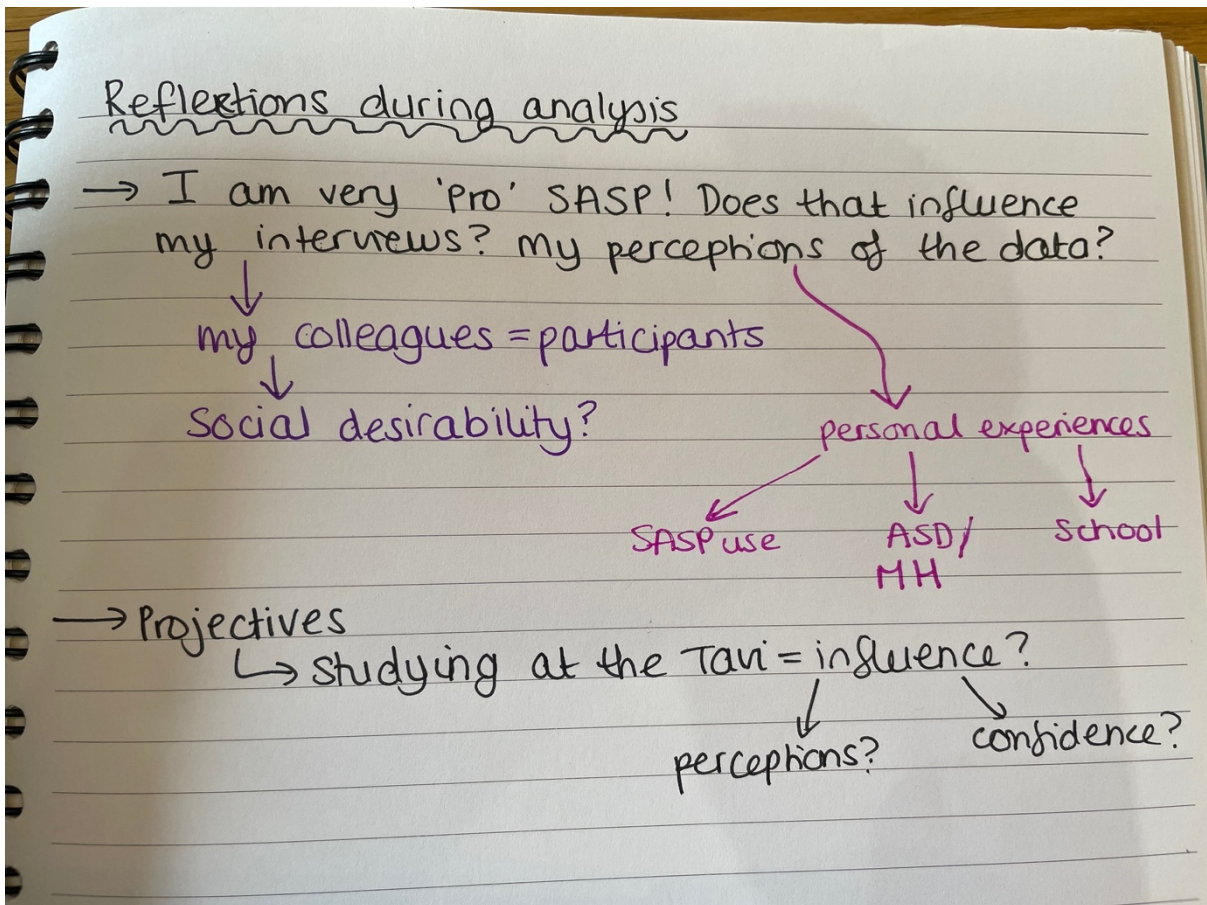 Reflections during analysis
→ I am very 'pro' SASP! Does that influence
my interviews? my perceptions of the data?
my colleagues = participants
Social desirability?
personal experiences
SASP use
ASD/
MH
School
→ Projectives
↳ studying at the Tavi = influence?
perceptions?
confidence?